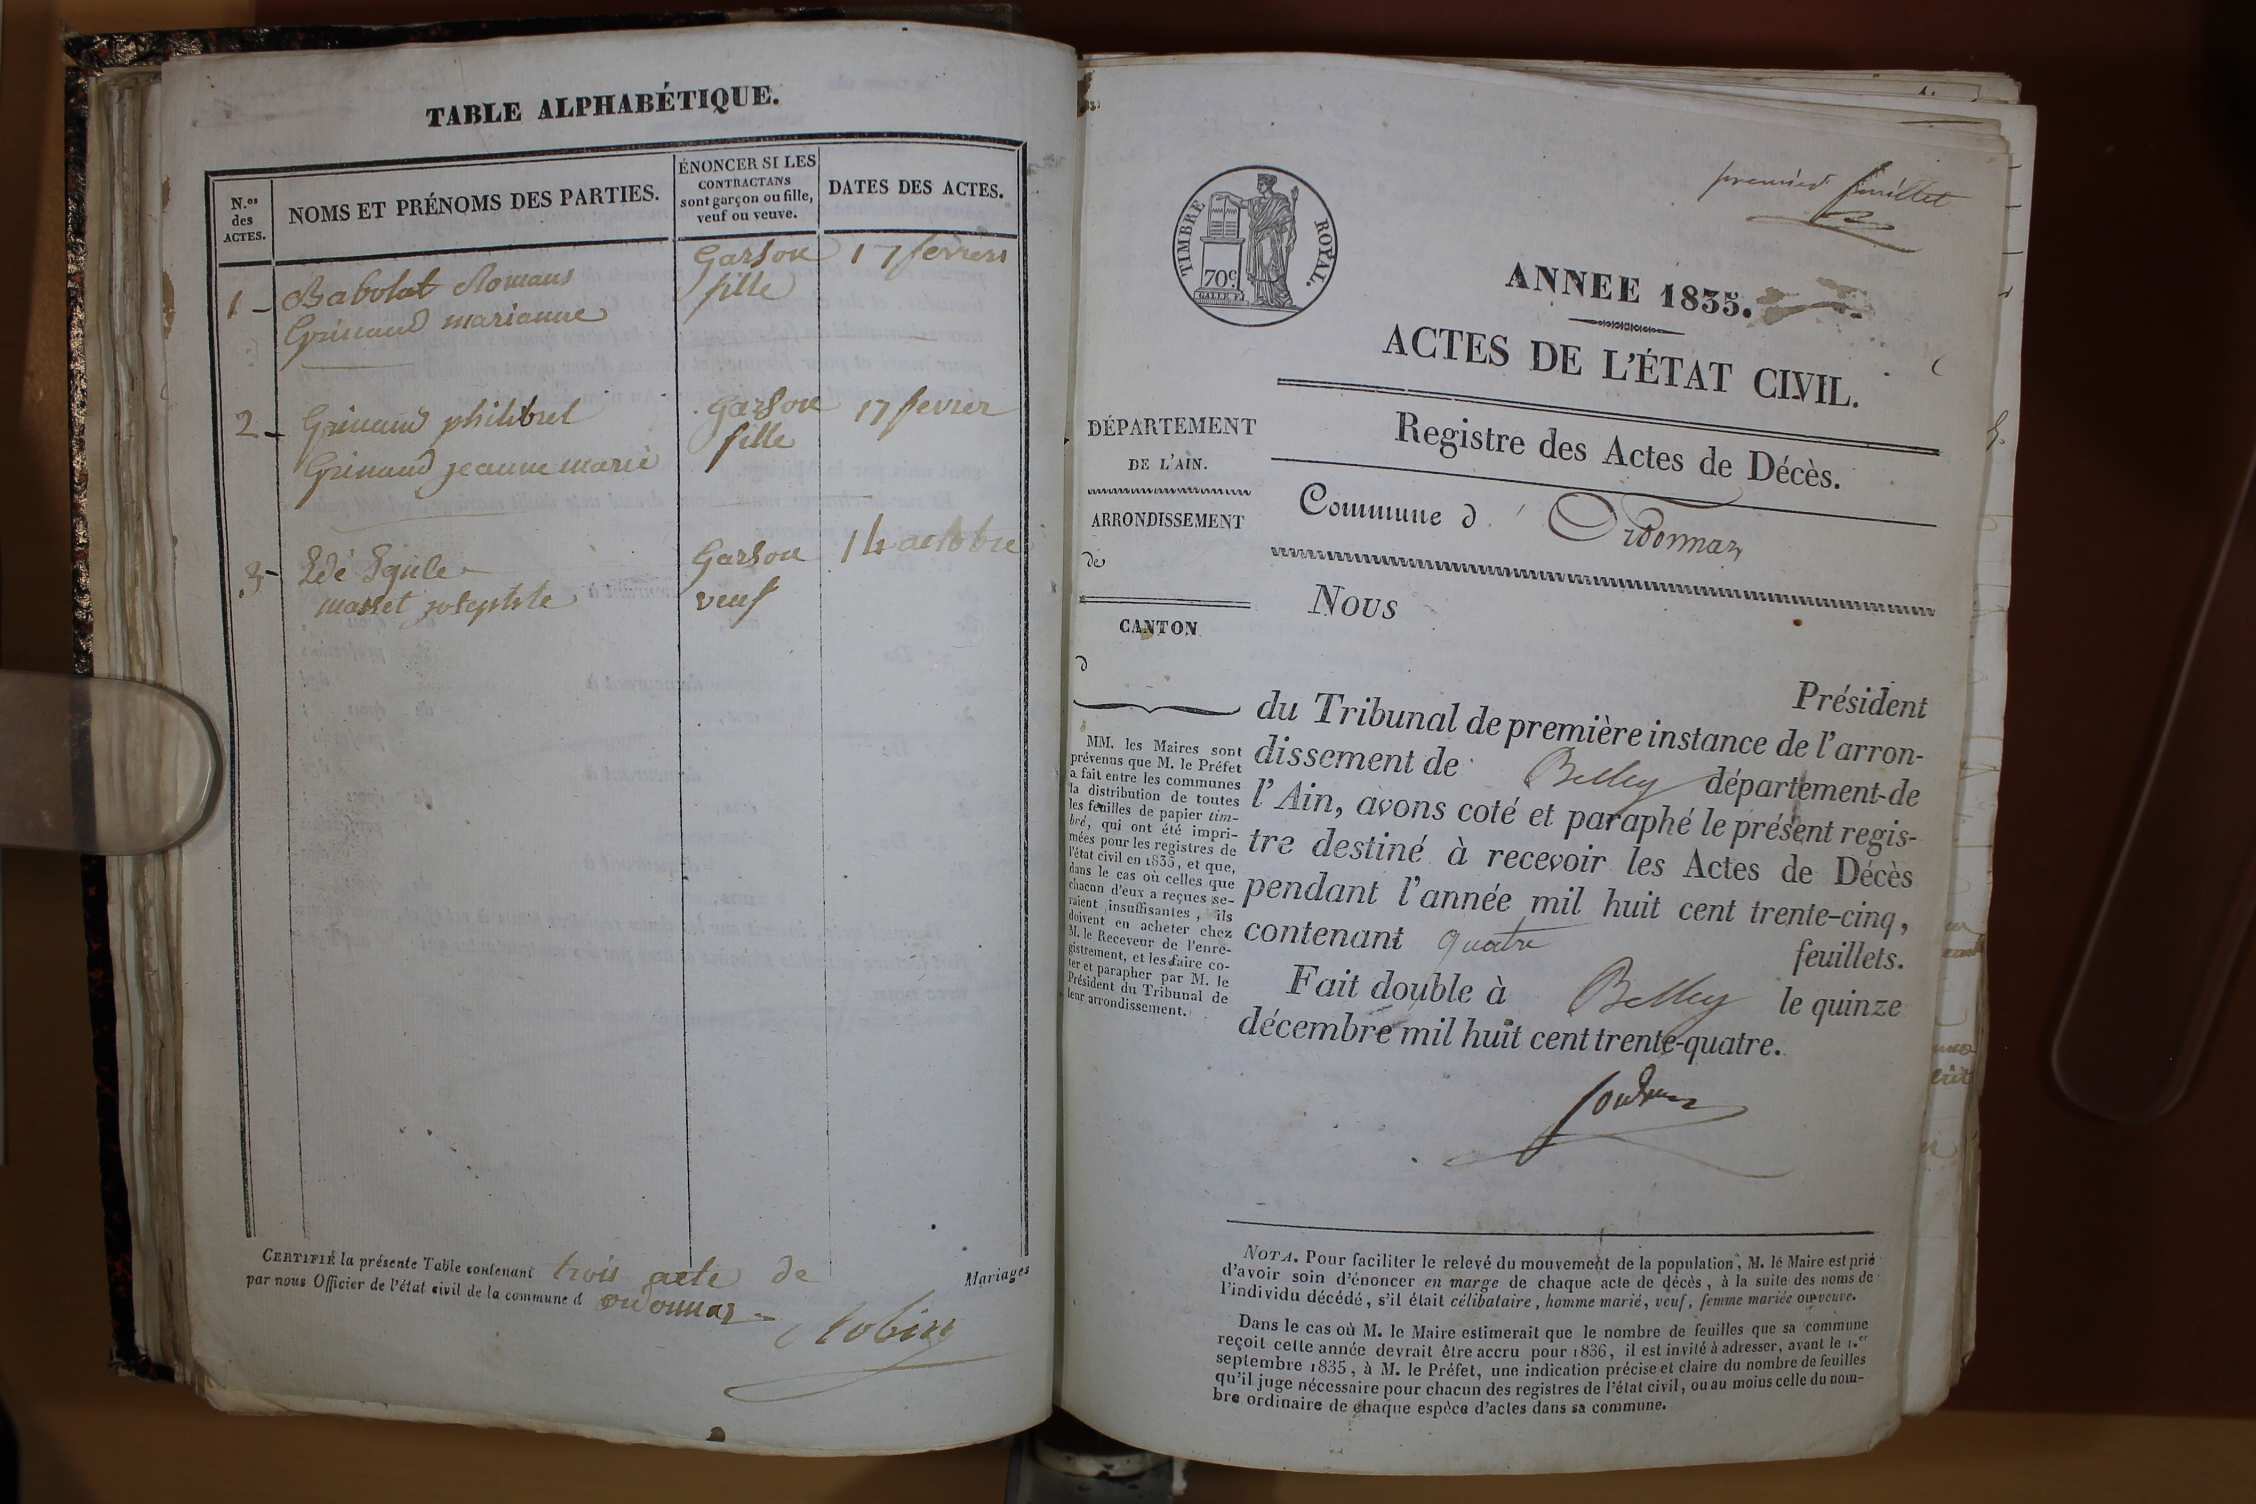 TABLE ALPHABÉTIQUE.
N.os
des
ACTES.
NOMS ET PRÉNOMS DES PARTIES.
ÉNONCER SI LES
CONTRACTANS
sont garçon ou fille,
veuf ou veuve.
DATES DES ACTES.
1 - Babolat Romans Garson 17 fevrers
Grinand marianne fille
2 - Grinand philibrel Garson 17 fevrer
Grinand jeanne marie fille
3 - Garson 14 actobre
masset veuf
CERTIFIÉ la présente Table contenant trois acte de Mariages
par nous Officier de l'état civil de la commune d ordonnaz -
Robin
premier feuillet
TIMBRE ROYAL.
70c.
ANNEE 1835.
ACTES DE L'ÉTAT CIVIL.
Registre des Actes de Décès.
Commune d' Ordonnaz
DÉPARTEMENT
DE L'AIN.
ARRONDISSEMENT
de
CANTON
d
MM. les Maires sont
prévenus que M. le Préfet
a fait entre les communes
la distribution de toutes
les feuilles de papier tim-
bré, qui ont été impri-
mées pour les registres de
l'état civil en 1835, et que,
dans le cas où celles que
chacun d'eux a reçues se-
raient insuffisantes, ils
doivent en acheter chez
M. le Receveur de l'enre-
gistrement, et les faire co-
ter et parapher par M. le
Président du Tribunal de
leur arrondissement.
Nous
Président
du Tribunal de première instance de l'arron-
dissement de Belley département de
l'Ain, avons coté et paraphé le présent regis-
tre destiné à recevoir les Actes de Décès
pendant l'année mil huit cent trente-cinq,
contenant quatre feuillets.
Fait double à Belley le quinze
décembre mil huit cent trente-quatre.
NOTA. Pour faciliter le relevé du mouvement de la population, M. le Maire est prié
d'avoir soin d'énoncer en marge de chaque acte de décès, à la suite des noms de
l'individu décédé, s'il était célibataire, homme marié, veuf, femme mariée ou veuve.
Dans le cas où M. le Maire estimerait que le nombre de feuilles que sa commune
reçoit cette année devrait être accru pour 1836, il est invité à adresser, avant le 1.er
septembre 1835, à M. le Préfet, une indication précise et claire du nombre de feuilles
qu'il juge nécessaire pour chacun des registres de l'état civil, ou au moins celle du nom-
bre ordinaire de chaque espèce d'actes dans sa commune.